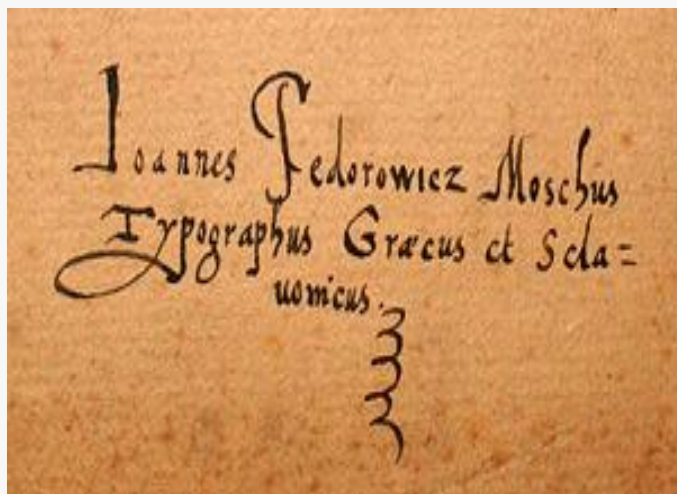 Ioannes Fedorowicz Moschus
Typographus Græcus et Scla=
uonicus.